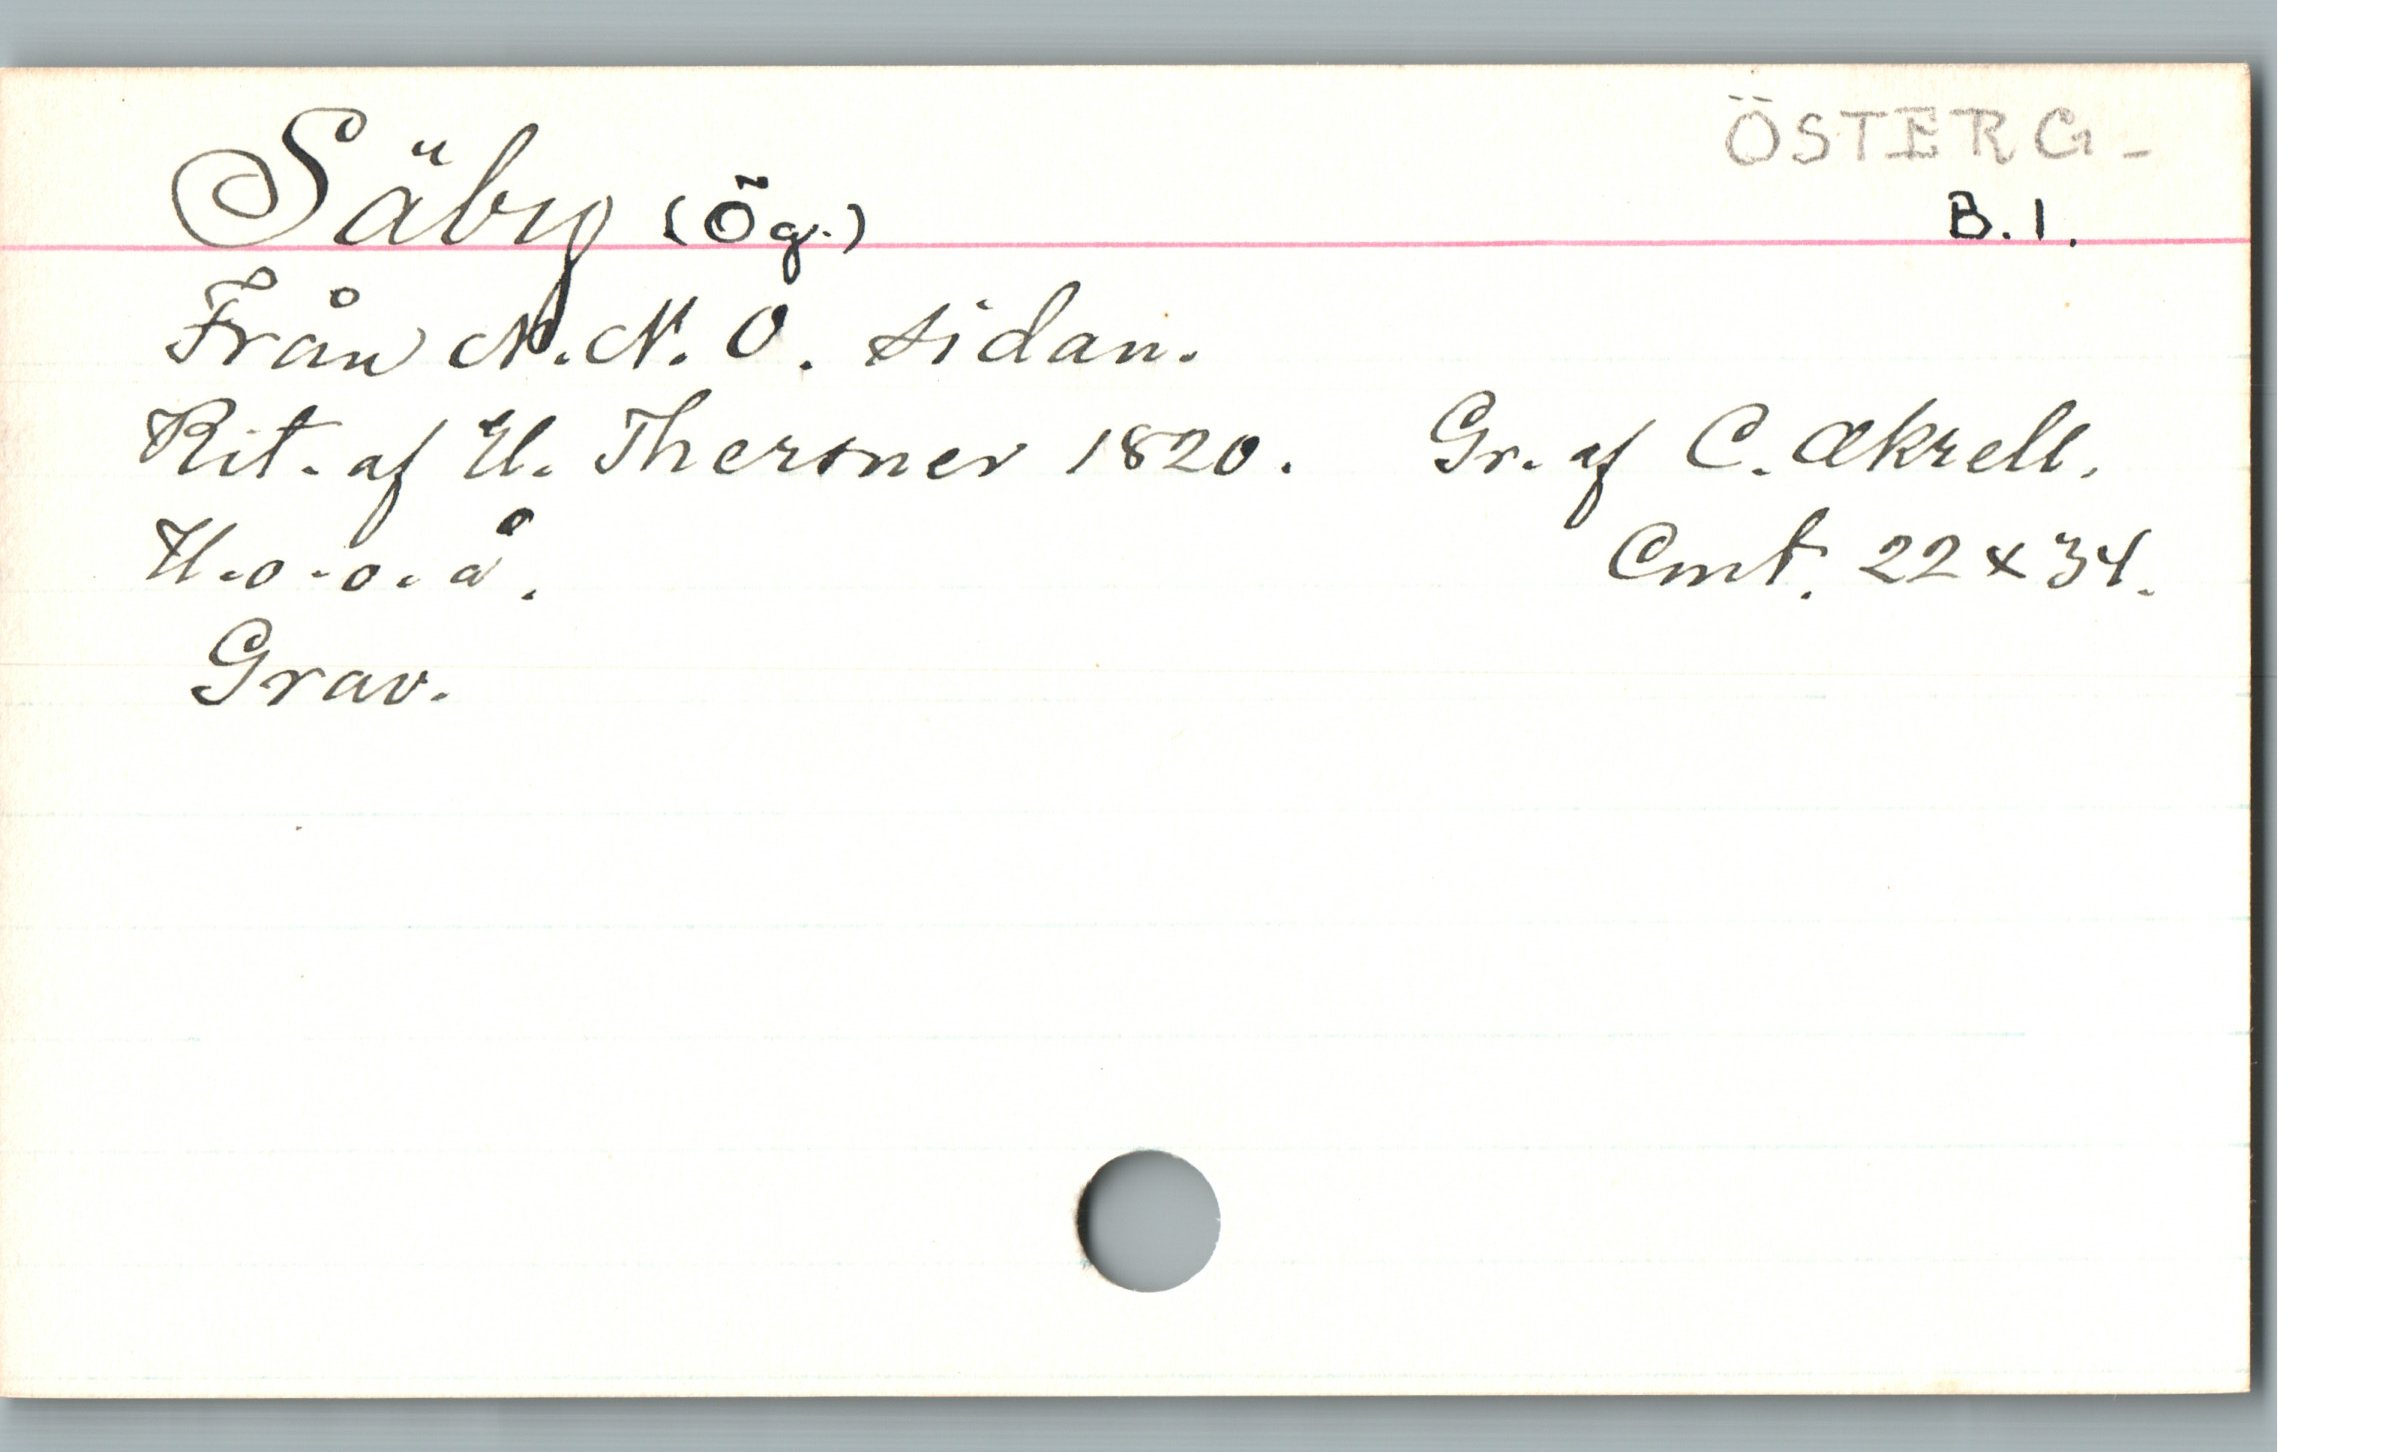 ÖSTERG-
Säby (Ög.) B.1.
Från N.N.O. sidan.
Rit. af U. Thersner 1820. Gr. af C. Akrell.
U.o.o.å. Cmt. 22 x 34.
Grav.